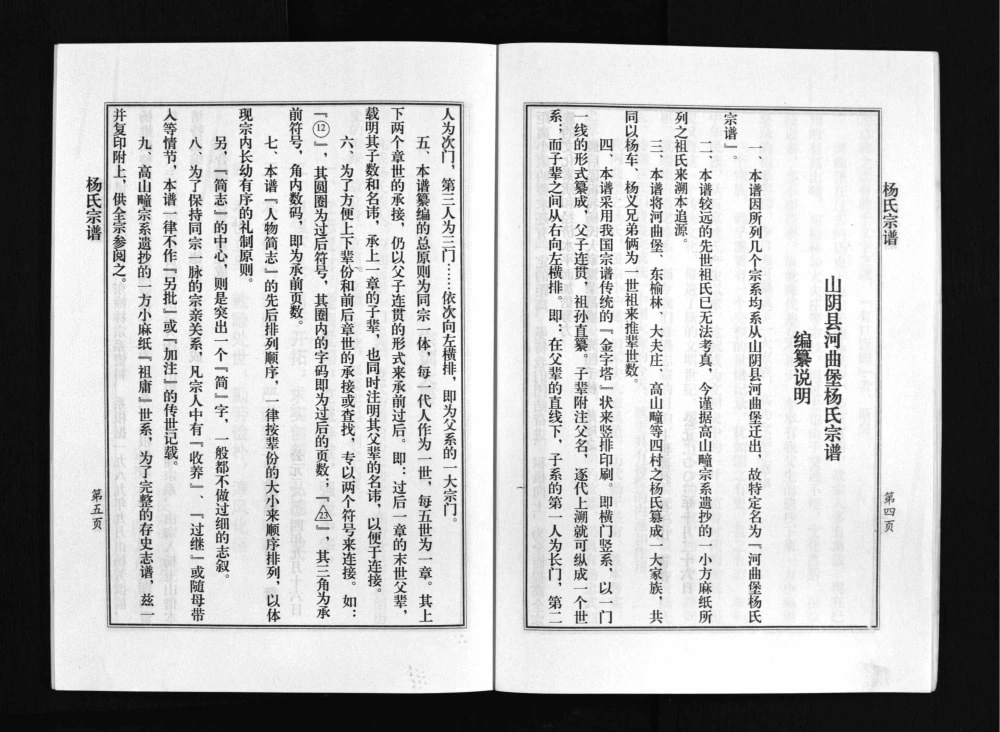 杨氏宗谱
山阴县河曲堡杨氏宗谱
编纂说明
一、本谱因所列几个宗系均系从山阴县河曲堡迁出，故特定名为『河曲堡杨氏
宗谱』。
二、本谱较远的先世祖氏已无法考真，今谨据高山疃宗系遗抄的一小方麻纸所
列之祖氏来溯本追源。
三、本谱将河曲堡、东榆林、大夫庄、高山疃等四村之杨氏纂成一大家族，共
同以杨车、杨义兄弟俩为一世祖来推辈世数。
四、本谱采用我国宗谱传统的『金字塔』状来竖排印刷。即横门竖系，以一门
一线的形式纂成，父子连贯，祖孙直纂。子辈附注父名，逐代上溯就可纵成一个世
系；而子辈之间从右向左横排。即：在父辈的直线下，子系的第一人为长门，第二
第四页
人为次门，第三人为三门……依次向左横排，即为父系的一大宗门。
五、本谱纂编的总原则为同宗一体，每一代人作为一世，每五世为一章。其上
下两个章世的承接，仍以父子连贯的形式来承前过后。即：过后一章的末世父辈，
载明其子数和名讳，承上一章的子辈，也同时注明其父辈的名讳，以便于连接。
六、为了方便上下辈份和前后章世的承接或查找，专以两个符号来连接。如：
『⑫』，其圆圈为过后符号，其圈内的字码即为过后的页数；『△23』，其三角为承
前符号，角内数码，即为承前页数。
七、本谱『人物简志』的先后排列顺序，一律按辈份的大小来顺序排列，以体
现宗内长幼有序的礼制原则。
另，『简志』的中心，则是突出一个『简』字，一般都不做过细的志叙。
八、为了保持同宗一脉的宗亲关系，凡宗人中有『收养』、『过继』或随母带
入等情节，本谱一律不作『另批』或『加注』的传世记载。
九、高山疃宗系遗抄的一方小麻纸『祖庸』世系，为了完整的存史志谱，兹一
并复印附上，供全宗参阅之。
杨氏宗谱
第五页